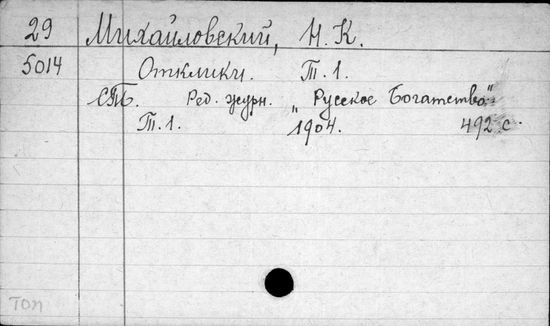 29 Михайловский, Н. К.
5014 Отклики. Т. 1.
СПБ. Ред. журн. „Русское Богатство"
Т. 1. 1904. 492 с.
Топ